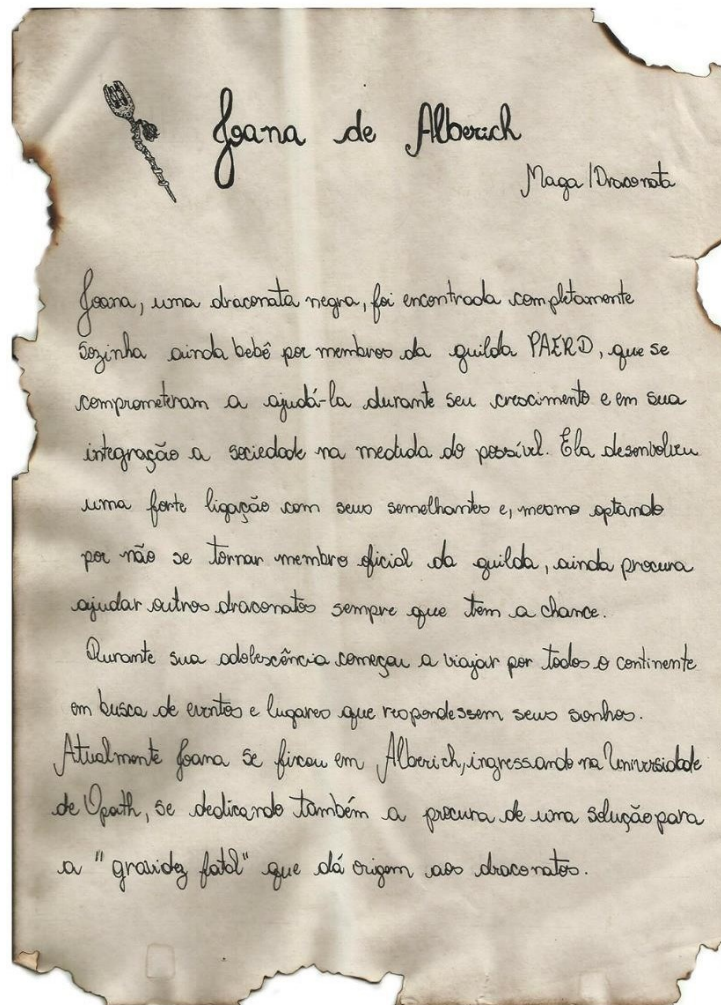 Joana de Alberich
Maga/Draconata
Joana, uma draconata negra, foi encontrada completamente
sozinha ainda bebê por membros da guilda PAERD, que se
comprometeram a ajudá-la durante seu crescimento e em sua
integração a sociedade na medida do possível. Ela desenvolveu
uma forte ligação com seus semelhantes e, mesmo optando
por não se tornar membro oficial da guilda, ainda procura
ajudar outros draconatos sempre que tem a chance.
Durante sua adolescência começou a viajar por todos o continente
em busca de eventos e lugares que respondessem seus sonhos.
Atualmente Joana se fixou em Alberich, ingressando na Universidade
de Opath, se dedicando também a procura de uma solução para
a "gravidez fatal" que dá origem aos draconatos.